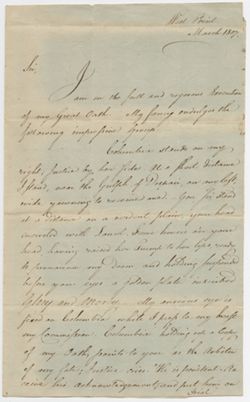 West Point
March 1807
Sir,
I am in the full and rigorous Execution
of my great Oath. My fancy indulges the
following imperfect Group.
Columbia stands on my
right, Justice by her side. At a short distance
I stand, near the Gulph of Despair, on my left
wide yawning to receive me. You Sir stand
at a distance on a verdant plain, your head
encircled with Laurel. Fame hovers over your
head having raised her Trump to her lips ready
to pronounce my Doom and holding suspended
before your eyes a golden plate inscribed
Glory and Mercy. My anxious eye is
fixed on Columbia while I press to my breast
my Commission. Columbia holding out a
of my Oath, points to you as the Arbiter
of my fate; Justice cries "He is penitent. Re
ceive his acknowledgements and put him on
Trial